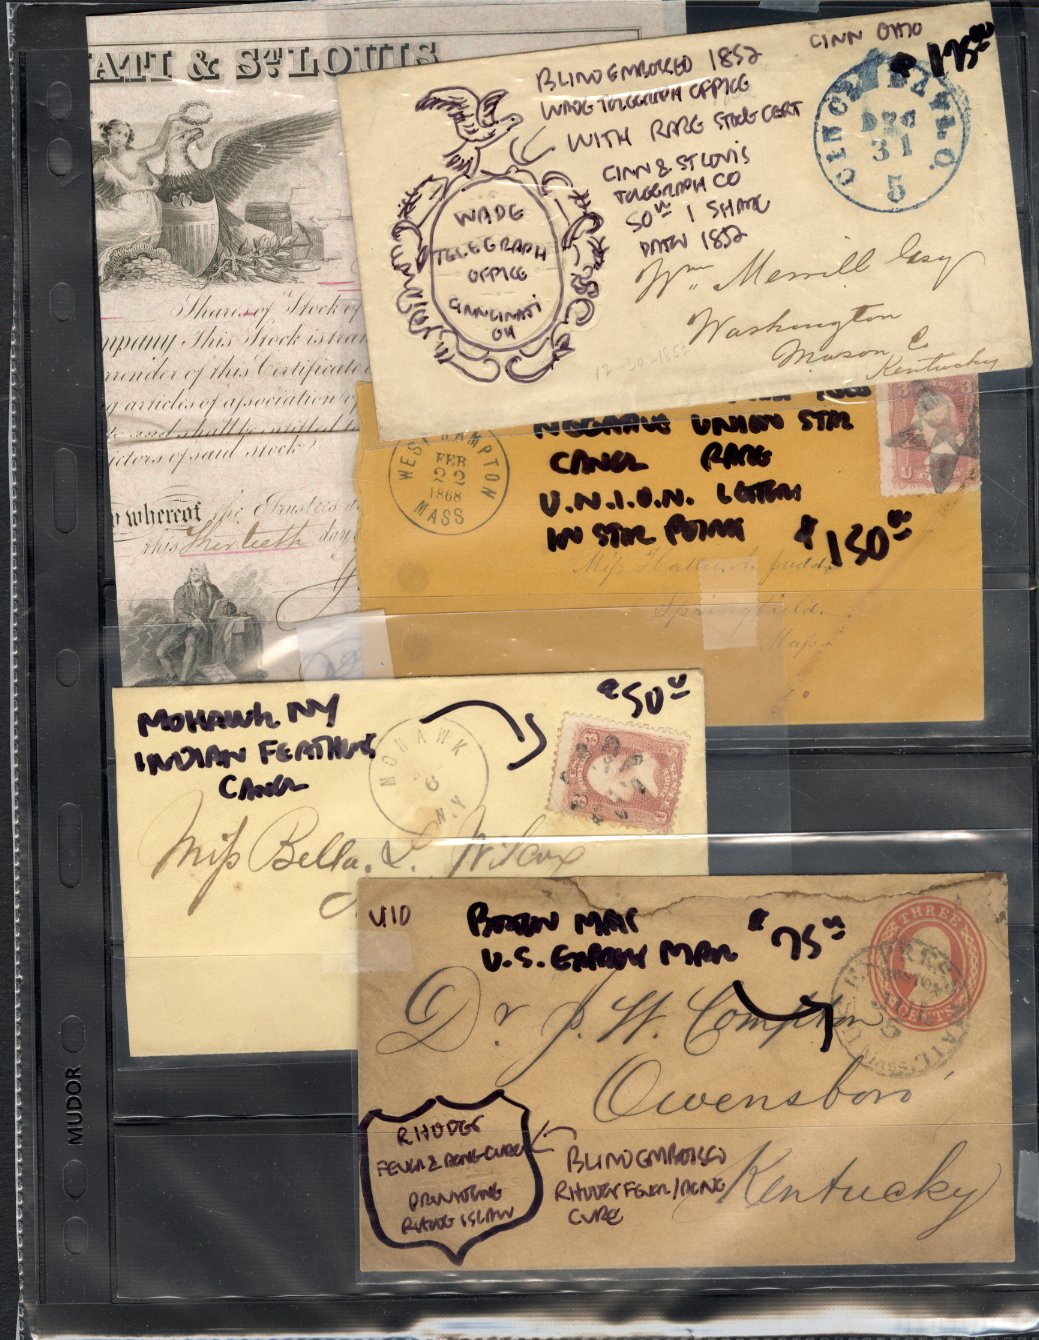 ATI & ST. LOUIS
Shares of Stock of
mpany This Stock is tran
rrender of this Certificate
g articles of association of
to and shall be entitled t
ctors of said stock
whereof the Trustees
this Thirtieth day
BLIND EMBOSSED 1852
WADE TELEGRAPH OFFICE
WITH RARE STOCK CERT
CINN & ST LOUIS
TELEGRAPH CO
50 00 1 SHARE
DATED 1852
CINN OHIO
$175 00
WADE
TELEGRAPH
OFFICE
CINCINNATI
OH
CINCINNATI. O.
DEC
31
5
Wm Merrill Esq
Washington
Mason Co
Kentucky
12-30-1852
WESTHAMPTON
FEB
22
1868
MASS
NEGATIVE UNION STAR
CANCEL RARE
U.N.I.O.N. LETTERS
IN STAR POINTS
$150 00
Miss Hattie A. Judd,
Springfield,
Mass.
MOHAWK NY
INDIAN FEATHERS
CANCEL
$50 00
MOHAWK
6
N.Y.
3 3
U S
Miss Bella. L. Wilcox
U10
BOSTON MAS
U.S. EXPRESS MAIL
$75 00
THREE
CENTS
U.S. EXPRESS MAIL
BOSTON
Dr J. W. Compton
Owensboro
Kentucky
RHODES
FEVER & AGUE CURE
PROVIDENCE
RHODE ISLAND
BLIND EMBOSSED
RHODES FEVER/AGUE
CURE
MUDOR